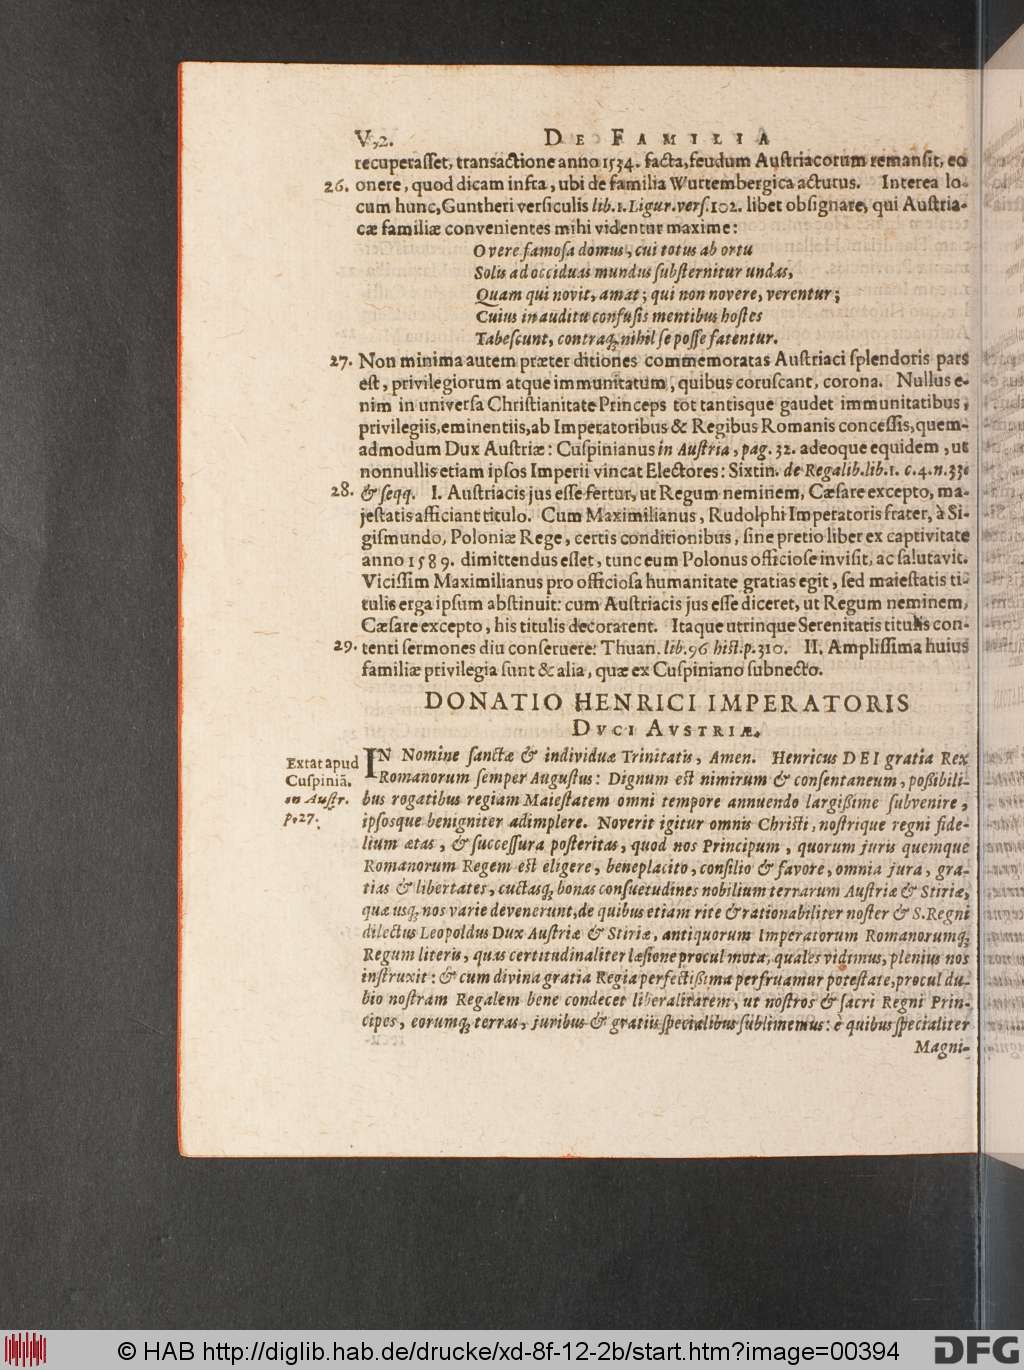 V,2. DE FAMILIA
recuperasset, transactione anno 1534. facta, feudum Austriacorum remansit, eo
26. onere, quod dicam infra, ubi de familia Wurtembergica acturus. Interea lo-
cum hunc, Guntheri versiculis lib. 1. Ligur. vers. 102. libet obsignare, qui Austria-
cæ familiæ convenientes mihi videntur maxime:
O vere famosa domus, cui totus ab ortu
Solis ad occiduas mundus substernitur undas,
Quam qui novit, amat; qui non novere, verentur;
Cuius inauditu confusis mentibus hostes
Tabescunt, contraq; nihil se posse fatentur.
27. Non minima autem præter ditiones commemoratas Austriaci splendoris pars
est, privilegiorum atque immunitatum, quibus coruscant, corona. Nullus e-
nim in universa Christianitate Princeps tot tantisque gaudet immunitatibus,
privilegiis, eminentiis, ab Imperatoribus & Regibus Romanis concessis, quem-
admodum Dux Austriæ: Cuspinianus in Austria, pag. 32. adeoque equidem, ut
nonnullis etiam ipsos Imperii vincat Electores: Sixtin. de Regalib. lib. 1. c. 4. n. 33.
28. & seqq. I. Austriacis jus esse fertur, ut Regum neminem, Cæsare excepto, ma-
jestatis afficiant titulo. Cum Maximilianus, Rudolphi Imperatoris frater, à Si-
gismundo, Poloniæ Rege, certis conditionibus, sine pretio liber ex captivitate
anno 1589. dimittendus esset, tunc eum Polonus officiose invisit, ac salutavit.
Vicissim Maximilianus pro officiosa humanitate gratias egit, sed maiestatis ti-
tulis erga ipsum abstinuit: cum Austriacis jus esse diceret, ut Regum neminem,
Cæsare excepto, his titulis decorarent. Itaque utrinque Serenitatis titulis con-
29. tenti sermones diu conseruere: Thuan. lib. 96 hist. p. 310. II. Amplissima huius
familiæ privilegia sunt & alia, quæ ex Cuspiniano subnecto.
DONATIO HENRICI IMPERATORIS
DVCI AVSTRIÆ.
Extat apud
Cuspiniā.
in Austr.
p. 27.
IN Nomine sanctæ & individuæ Trinitatis, Amen. Henricus DEI gratia Rex
Romanorum semper Augustus: Dignum est nimirum & consentaneum, possibili-
bus rogatibus regiam Maiestatem omni tempore annuendo largissime subvenire,
ipsosque benigniter adimplere. Noverit igitur omnis Christi, nostrique regni fide-
lium ætas, & successura posteritas, quod nos Principum, quorum juris quemque
Romanorum Regem est eligere, beneplacito, consilio & favore, omnia jura, gra-
tias & libertates, cuctasq; bonas consuetudines nobilium terrarum Austriæ & Stiriæ,
quæ usq; nos varie devenerunt, de quibus etiam rite & rationabiliter noster & S. Regni
dilectus Leopoldus Dux Austriæ & Stiriæ, antiquorum Imperatorum Romanorumq;
Regum literis, quas certitudinaliter læsione procul mota, quales vidimus, plenius nos
instruxit: & cum divina gratia Regia perfectissima perfruamur potestate, procul du-
bio nostram Regalem bene condecet liberalitatem, ut nostros & sacri Regni Prin-
cipes, eorumq; terras, juribus & gratiis specialibus sublimemus: è quibus specialiter
Magni-
© HAB http://diglib.hab.de/drucke/xd-8f-12-2b/start.htm?image=00394
DFG